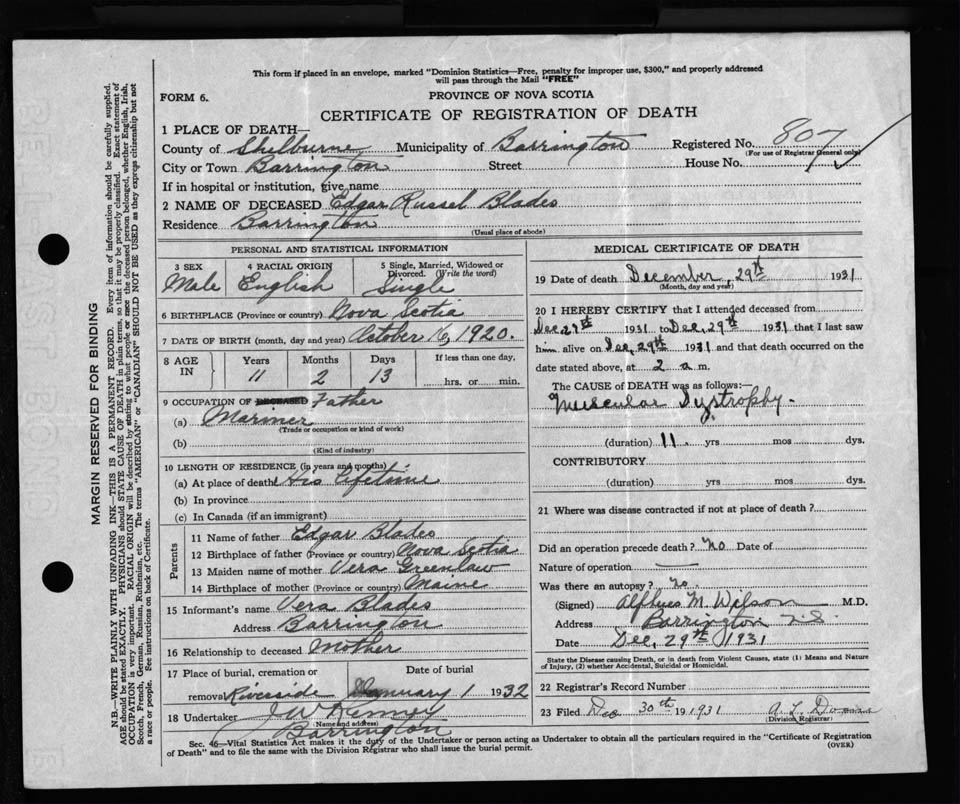 This form if placed in an envelope, marked "Dominion Statistics—Free, penalty for improper use, $300," and properly addressed
will pass through the Mail "FREE"
FORM 6.
PROVINCE OF NOVA SCOTIA
CERTIFICATE OF REGISTRATION OF DEATH
1 PLACE OF DEATH—
County of Shelburne Municipality of Barrington Registered No. 807
(For use of Registrar General only)
City or Town Barrington Street House No.
If in hospital or institution, give name
2 NAME OF DECEASED Edgar Russel Blades
Residence Barrington
(Usual place of abode)
PERSONAL AND STATISTICAL INFORMATION
3 SEX Male
4 RACIAL ORIGIN English
5 Single, Married, Widowed or Divorced. (Write the word) Single
6 BIRTHPLACE (Province or country) Nova Scotia
7 DATE OF BIRTH (month, day and year) October 16, 1920.
8 AGE IN Years Months Days If less than one day,
11 2 13 hrs. or min.
9 OCCUPATION OF DECEASED Father
(a) Mariner
(Trade or occupation or kind of work)
(b)
(Kind of industry)
10 LENGTH OF RESIDENCE (in years and months)
(a) At place of death His lifetime
(b) In province
(c) In Canada (if an immigrant)
Parents
11 Name of father Edgar Blades
12 Birthplace of father (Province or country) Nova Scotia
13 Maiden name of mother Vera Greenlaw
14 Birthplace of mother (Province or country) Maine
15 Informant's name Vera Blades
Address Barrington
16 Relationship to deceased Mother
17 Place of burial, cremation or Date of burial
removal Riverside January 1 1932
18 Undertaker J W Kenney
(Name and address)
Barrington
MEDICAL CERTIFICATE OF DEATH
19 Date of death December 29th 1931
(Month, day and year)
20 I HEREBY CERTIFY that I attended deceased from
Dec 29th 1931 to Dec, 29th 1931 that I last saw
him alive on Dec, 29th 1931 and that death occurred on the
date stated above, at 2 a m.
The CAUSE OF DEATH was as follows:—
Muscular Dystrophy.
(duration) 11. yrs mos dys.
CONTRIBUTORY
(duration) yrs mos dys.
21 Where was disease contracted if not at place of death?
Did an operation precede death? No Date of
Nature of operation —
Was there an autopsy? No.
(Signed) Alpheus M. Wilson M.D.
Address Barrington N.S.
Date Dec, 29th 1931
State the Disease causing Death, or in death from Violent Causes, state (1) Means and Nature
of Injury, (2) whether Accidental, Suicidal or Homicidal.
22 Registrar's Record Number
23 Filed Dec 30th 1931 A. L.
(Division Registrar)
Sec. 46—Vital Statistics Act makes it the duty of the Undertaker or person acting as Undertaker to obtain all the particulars required in the "Certificate of Registration
of Death" and to file the same with the Division Registrar who shall issue the burial permit.
(OVER)
MARGIN RESERVED FOR BINDING
N.B.—WRITE PLAINLY WITH UNFADING INK—THIS IS A PERMANENT RECORD. Every item of information should be carefully supplied.
AGE should be stated EXACTLY. PHYSICIANS should STATE CAUSE OF DEATH in plain terms, so that it may be properly classified. Exact statement of
OCCUPATION is very important. RACIAL ORIGIN will be described by stating to what people or race the deceased person belonged, whether English, Irish,
Scotch, French, German, Russian, Ruthenian, etc. The terms "AMERICAN" or "CANADIAN" SHOULD NOT BE USED as they express citizenship but not
a race or people. See instructions on back of Certificate.